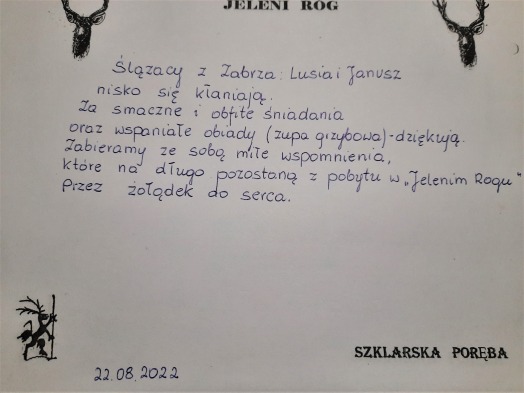 JELENI RÓG
Ślązacy z Zabrza: Lusia i Janusz
nisko się kłaniają.
Za smaczne i obfite śniadania
oraz wspaniałe obiady (zupa grzybowa) - dziękują.
Zabieramy ze sobą miłe wspomnienia,
które na długo pozostaną z pobytu w „Jelenim Rogu"
Przez żołądek do serca.
SZKLARSKA PORĘBA
22.08.2022